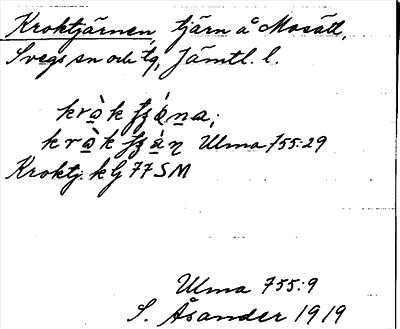 Kroktjärnen, tjärn å Mosätt,
Svegs sn och tg, Jämtl. l.
Ulma 755:29
Kroktj. kG 77 SM
Ulma 755:9
S. Åsander 1919